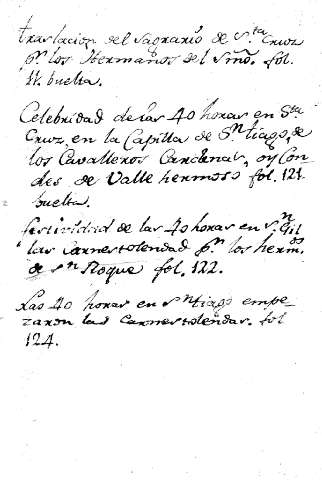 traslacion del Sagrario de S.ta Cruz
p.r los Hermanos del Smõ. fol.
vuelta.
Celebridad de las 40 horas en S.ta
Cruz, en la Capilla de S.n tiago, de
los Cavalleros Cardenas, oy Con
des de Valle hermoso fol. 121.
buelta.
festividad de las 40 horas en S.n Gil
las Carnestolendas p.r los herm.os
de S.n Roque fol. 122.
Las 40 horas en S.n tiago empe-
zaron las Carnestolendas. fol
124.